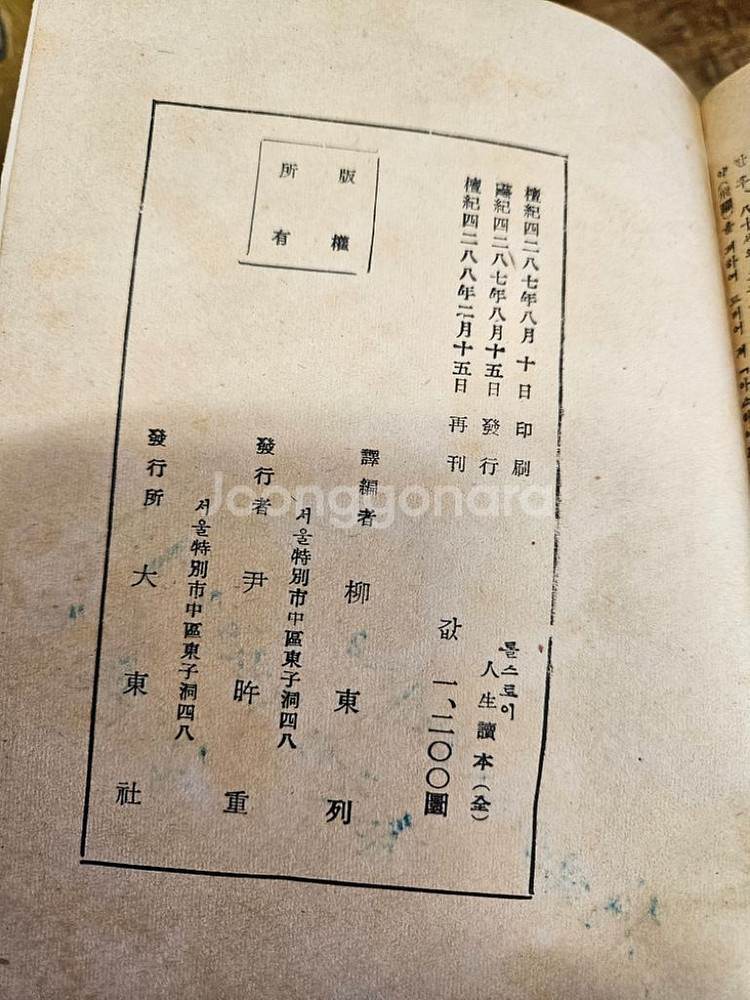 檀紀四二八七年八月十日 印刷
檀紀四二八七年八月十五日 發行
檀紀四二八八年二月十五日 再刊
版權
所有
톨스토이
人生讀本(全)
값 一、二〇〇圜
譯編者 柳東列
서울特別市中區東子洞四八
發行者 尹 重
서울特別市中區東子洞四八
發行所 大東社
Joonggonara